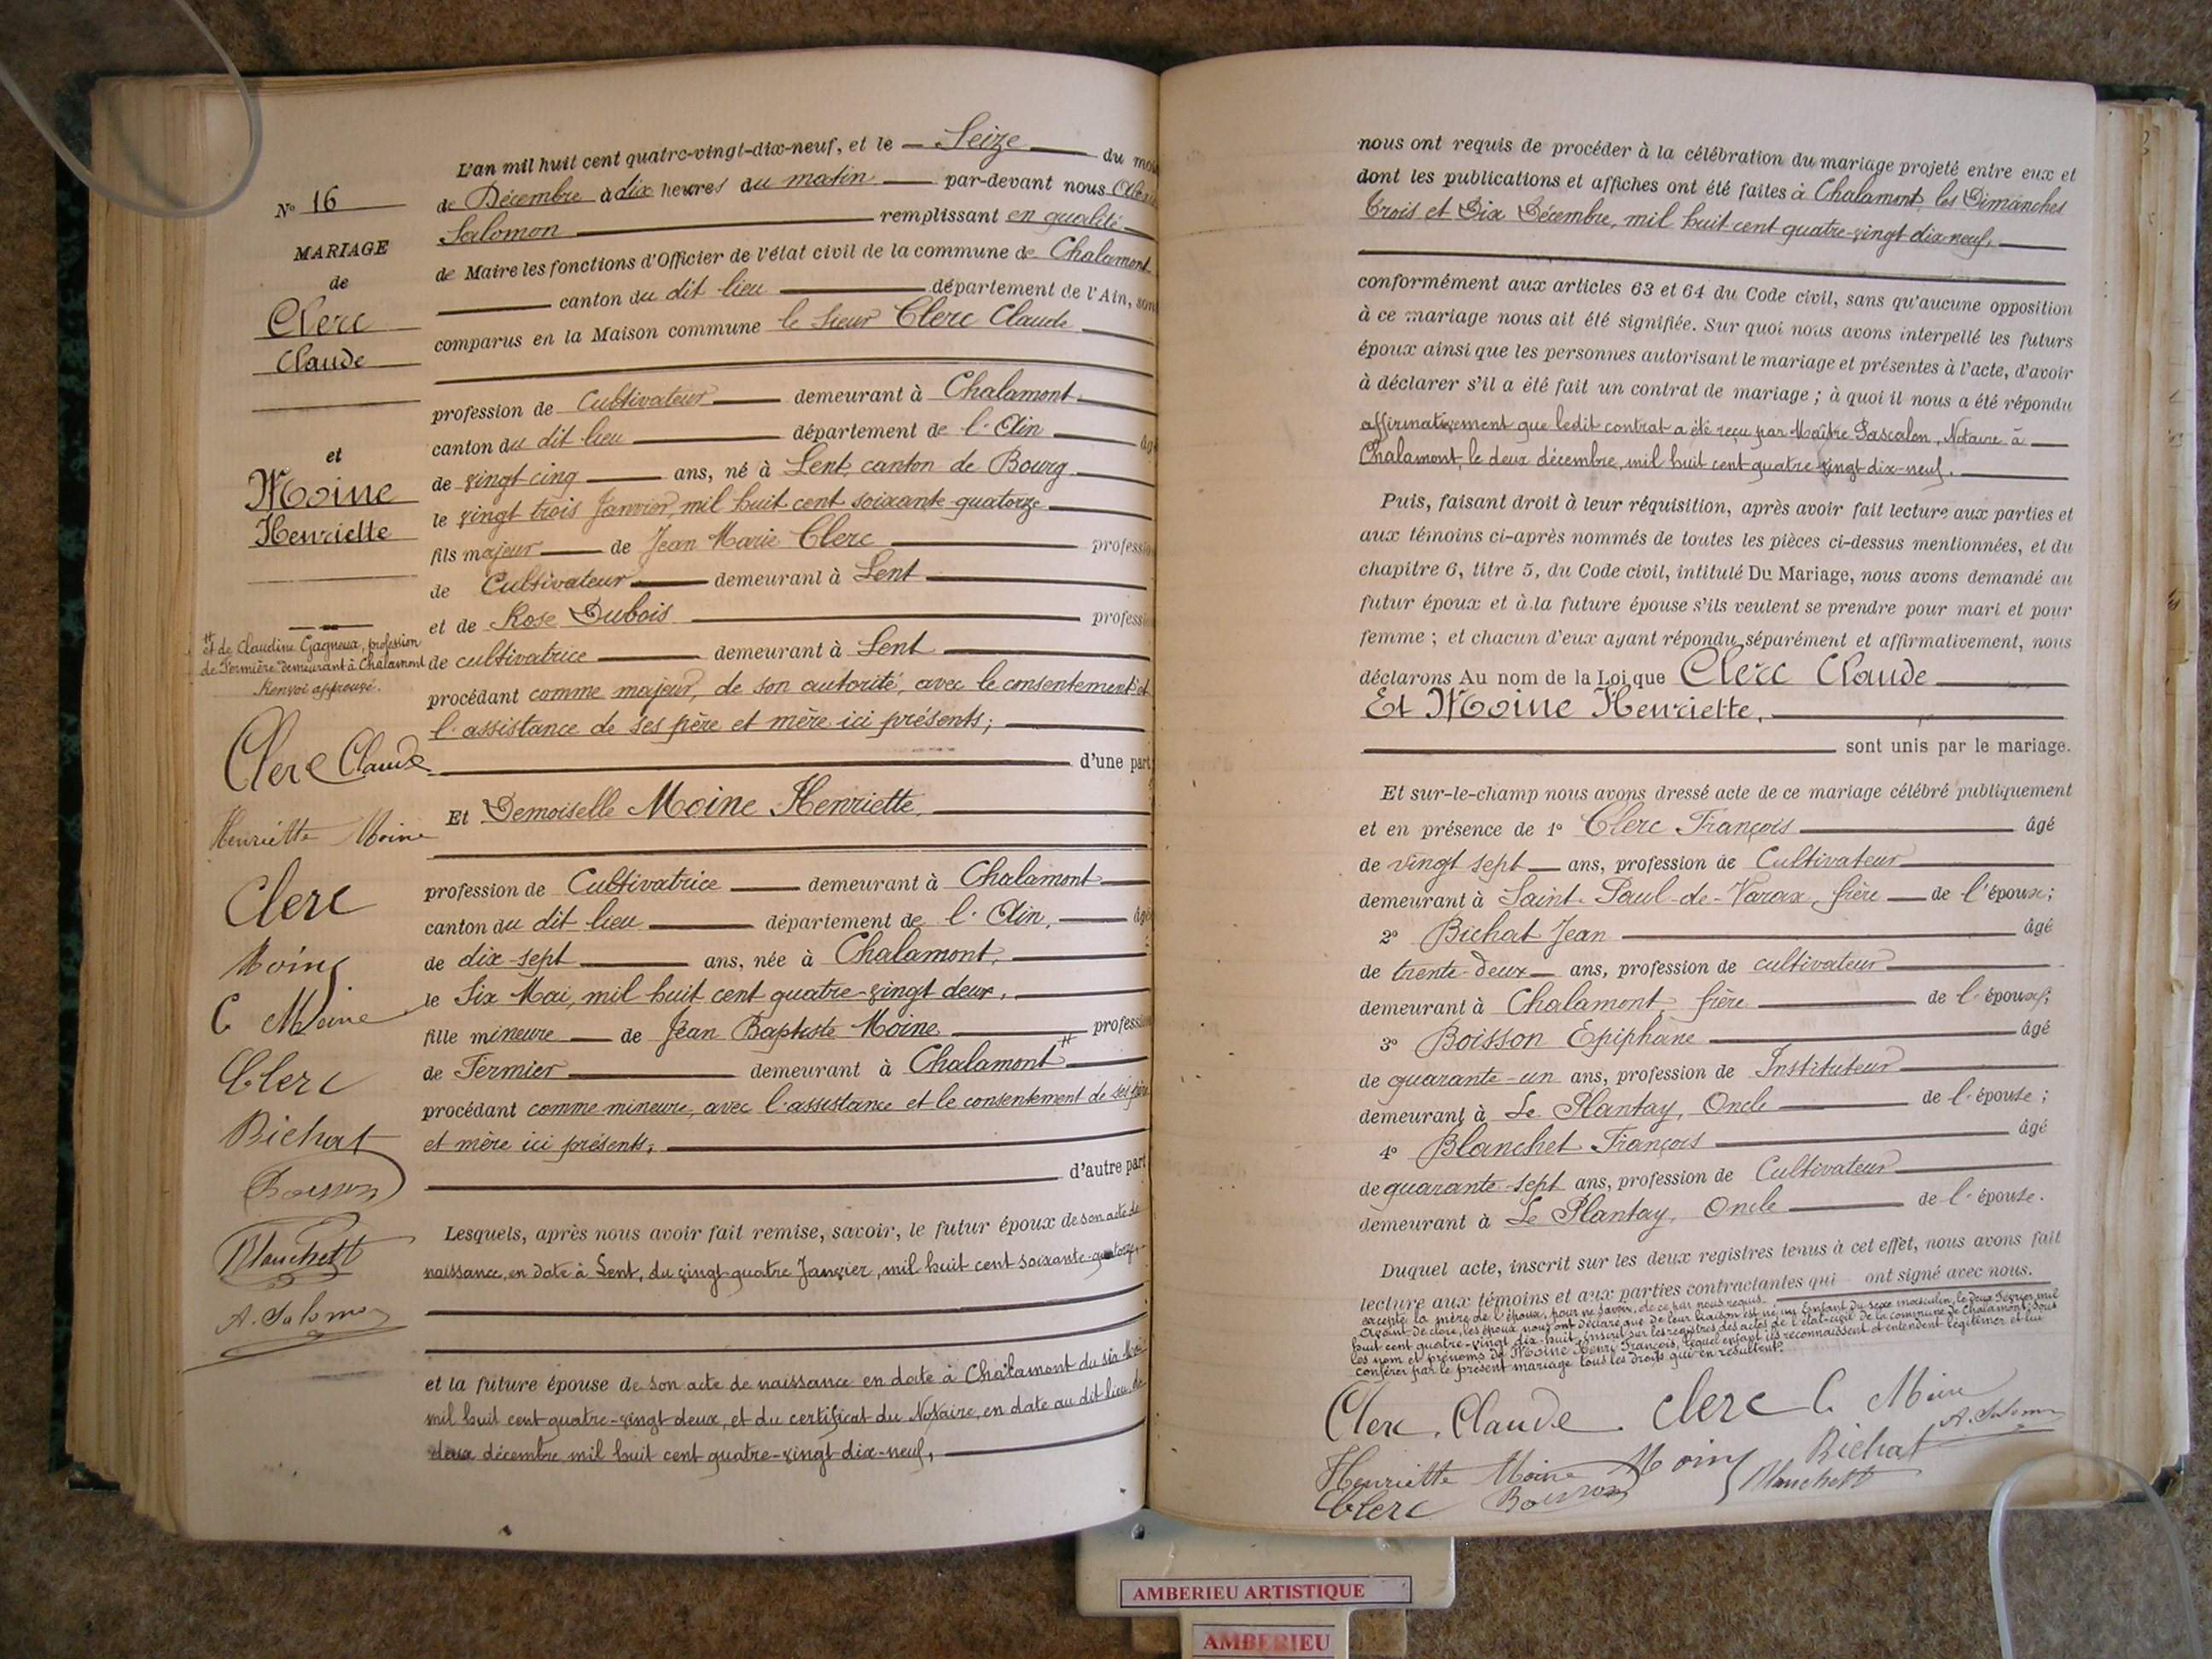 L'an mil huit cent quatre-vingt-dix-neuf, et le Seize du mois
de Décembre à dix heures du matin par-devant nous
Salomon remplissant en qualité
de Maire les fonctions d'Officier de l'état civil de la commune de Chalamont
canton du dit lieu département de l'Ain, son
comparus en la Maison commune le sieur Clerc Claude
profession de Cultivateur demeurant à Chalamont
canton du dit lieu département de l'Ain âgé
de vingt cinq ans, né à Lent, canton de Bourg
le vingt trois Janvier, mil huit cent soixante quatorze
fils majeur de Jean Marie Clerc profession
de Cultivateur demeurant à Lent
et de Rose Dubois profession
de cultivatrice demeurant à Lent
procédant comme majeur, de son autorité, avec le consentement et
l'assistance de ses père et mère ici présents;
d'une part
Et Demoiselle Moine Henriette,
profession de Cultivatrice demeurant à Chalamont
canton du dit lieu département de l'Ain, âgé
de dix-sept ans, née à Chalamont,
le Six Mai, mil huit cent quatre-vingt deux,
fille mineure de Jean Baptiste Moine profession
de Fermier demeurant à Chalamont #
procédant comme mineure, avec l'assistance et le consentement de ses père
et mère ici présents,
d'autre part
Lesquels, après nous avoir fait remise, savoir, le futur époux de son acte de
naissance, en date à Lent, du vingt-quatre Janvier, mil huit cent soixante-quatorze,
et la future épouse de son acte de naissance en date à Chalamont du six Mai
mil huit cent quatre-vingt deux, et du certificat du Notaire, en date au dit lieu de
deux décembre mil huit cent quatre-vingt-dix-neuf,
No 16
MARIAGE
de
Clerc
Claude
et
Moine
Henriette
# et de Claudine Gagneux, profession
de Fermière demeurant à Chalamont
Renvoi approuvé.
Clerc Claude
Henriette Moine
Clerc
Moine
C Moine
Clerc
Bichat
Boisson
Blanchett
A. Salomon
nous ont requis de procéder à la célébration du mariage projeté entre eux et
dont les publications et affiches ont été faites à Chalamont, les Dimanches
Trois et Dix Décembre, mil huit cent quatre-vingt dix-neuf,
conformément aux articles 63 et 64 du Code civil, sans qu'aucune opposition
à ce mariage nous ait été signifiée. Sur quoi nous avons interpellé les futurs
époux ainsi que les personnes autorisant le mariage et présentes à l'acte, d'avoir
à déclarer s'il a été fait un contrat de mariage ; à quoi il nous a été répondu
affirmativement que ledit contrat a été reçu par Maître Pascalon, Notaire à
Chalamont, le deux décembre, mil huit cent quatre vingt dix-neuf.
Puis, faisant droit à leur réquisition, après avoir fait lecture aux parties et
aux témoins ci-après nommés de toutes les pièces ci-dessus mentionnées, et du
chapitre 6, titre 5, du Code civil, intitulé Du Mariage, nous avons demandé au
futur époux et à la future épouse s'ils veulent se prendre pour mari et pour
femme ; et chacun d'eux ayant répondu séparément et affirmativement, nous
déclarons Au nom de la Loi que Clerc Claude
Et Moine Henriette,
sont unis par le mariage.
Et sur-le-champ nous avons dressé acte de ce mariage célébré publiquement
et en présence de 1° Clerc François âgé
de vingt sept ans, profession de Cultivateur
demeurant à Saint-Paul-de-Varax, frère de l'époux;
2° Bichat Jean âgé
de trente-deux ans, profession de cultivateur
demeurant à Chalamont, frère de l'époux;
3° Boisson Epiphane âgé
de quarante-un ans, profession de Instituteur
demeurant à Le Plantay, Oncle de l'épouse;
4° Blanchet François âgé
de quarante-sept ans, profession de Cultivateur
demeurant à Le Plantay, Oncle de l'épouse.
Duquel acte, inscrit sur les deux registres tenus à cet effet, nous avons fait
lecture aux témoins et aux parties contractantes qui ont signé avec nous.
excepté la mère de l'époux, pour ne savoir, de ce par nous requis.
Avant de clore, les époux nous ont déclaré que de leur liaison est né un Enfant du sexe masculin, le deux Février mil
huit cent quatre-vingt dix-huit, inscrit sur les registres des actes de l'état-civil de la commune de Chalamont, sous
les nom et prénoms de Moine Henri François, lequel enfant ils reconnaissent et entendent légitimer et lui
conférer par le présent mariage tous les droits qui en résultent.
Clerc Claude Clerc C Moine
A. Salomon
Henriette Moine Moine Bichat
Clerc Boisson Blanchett
AMBERIEU ARTISTIQUE
AMBERIEU